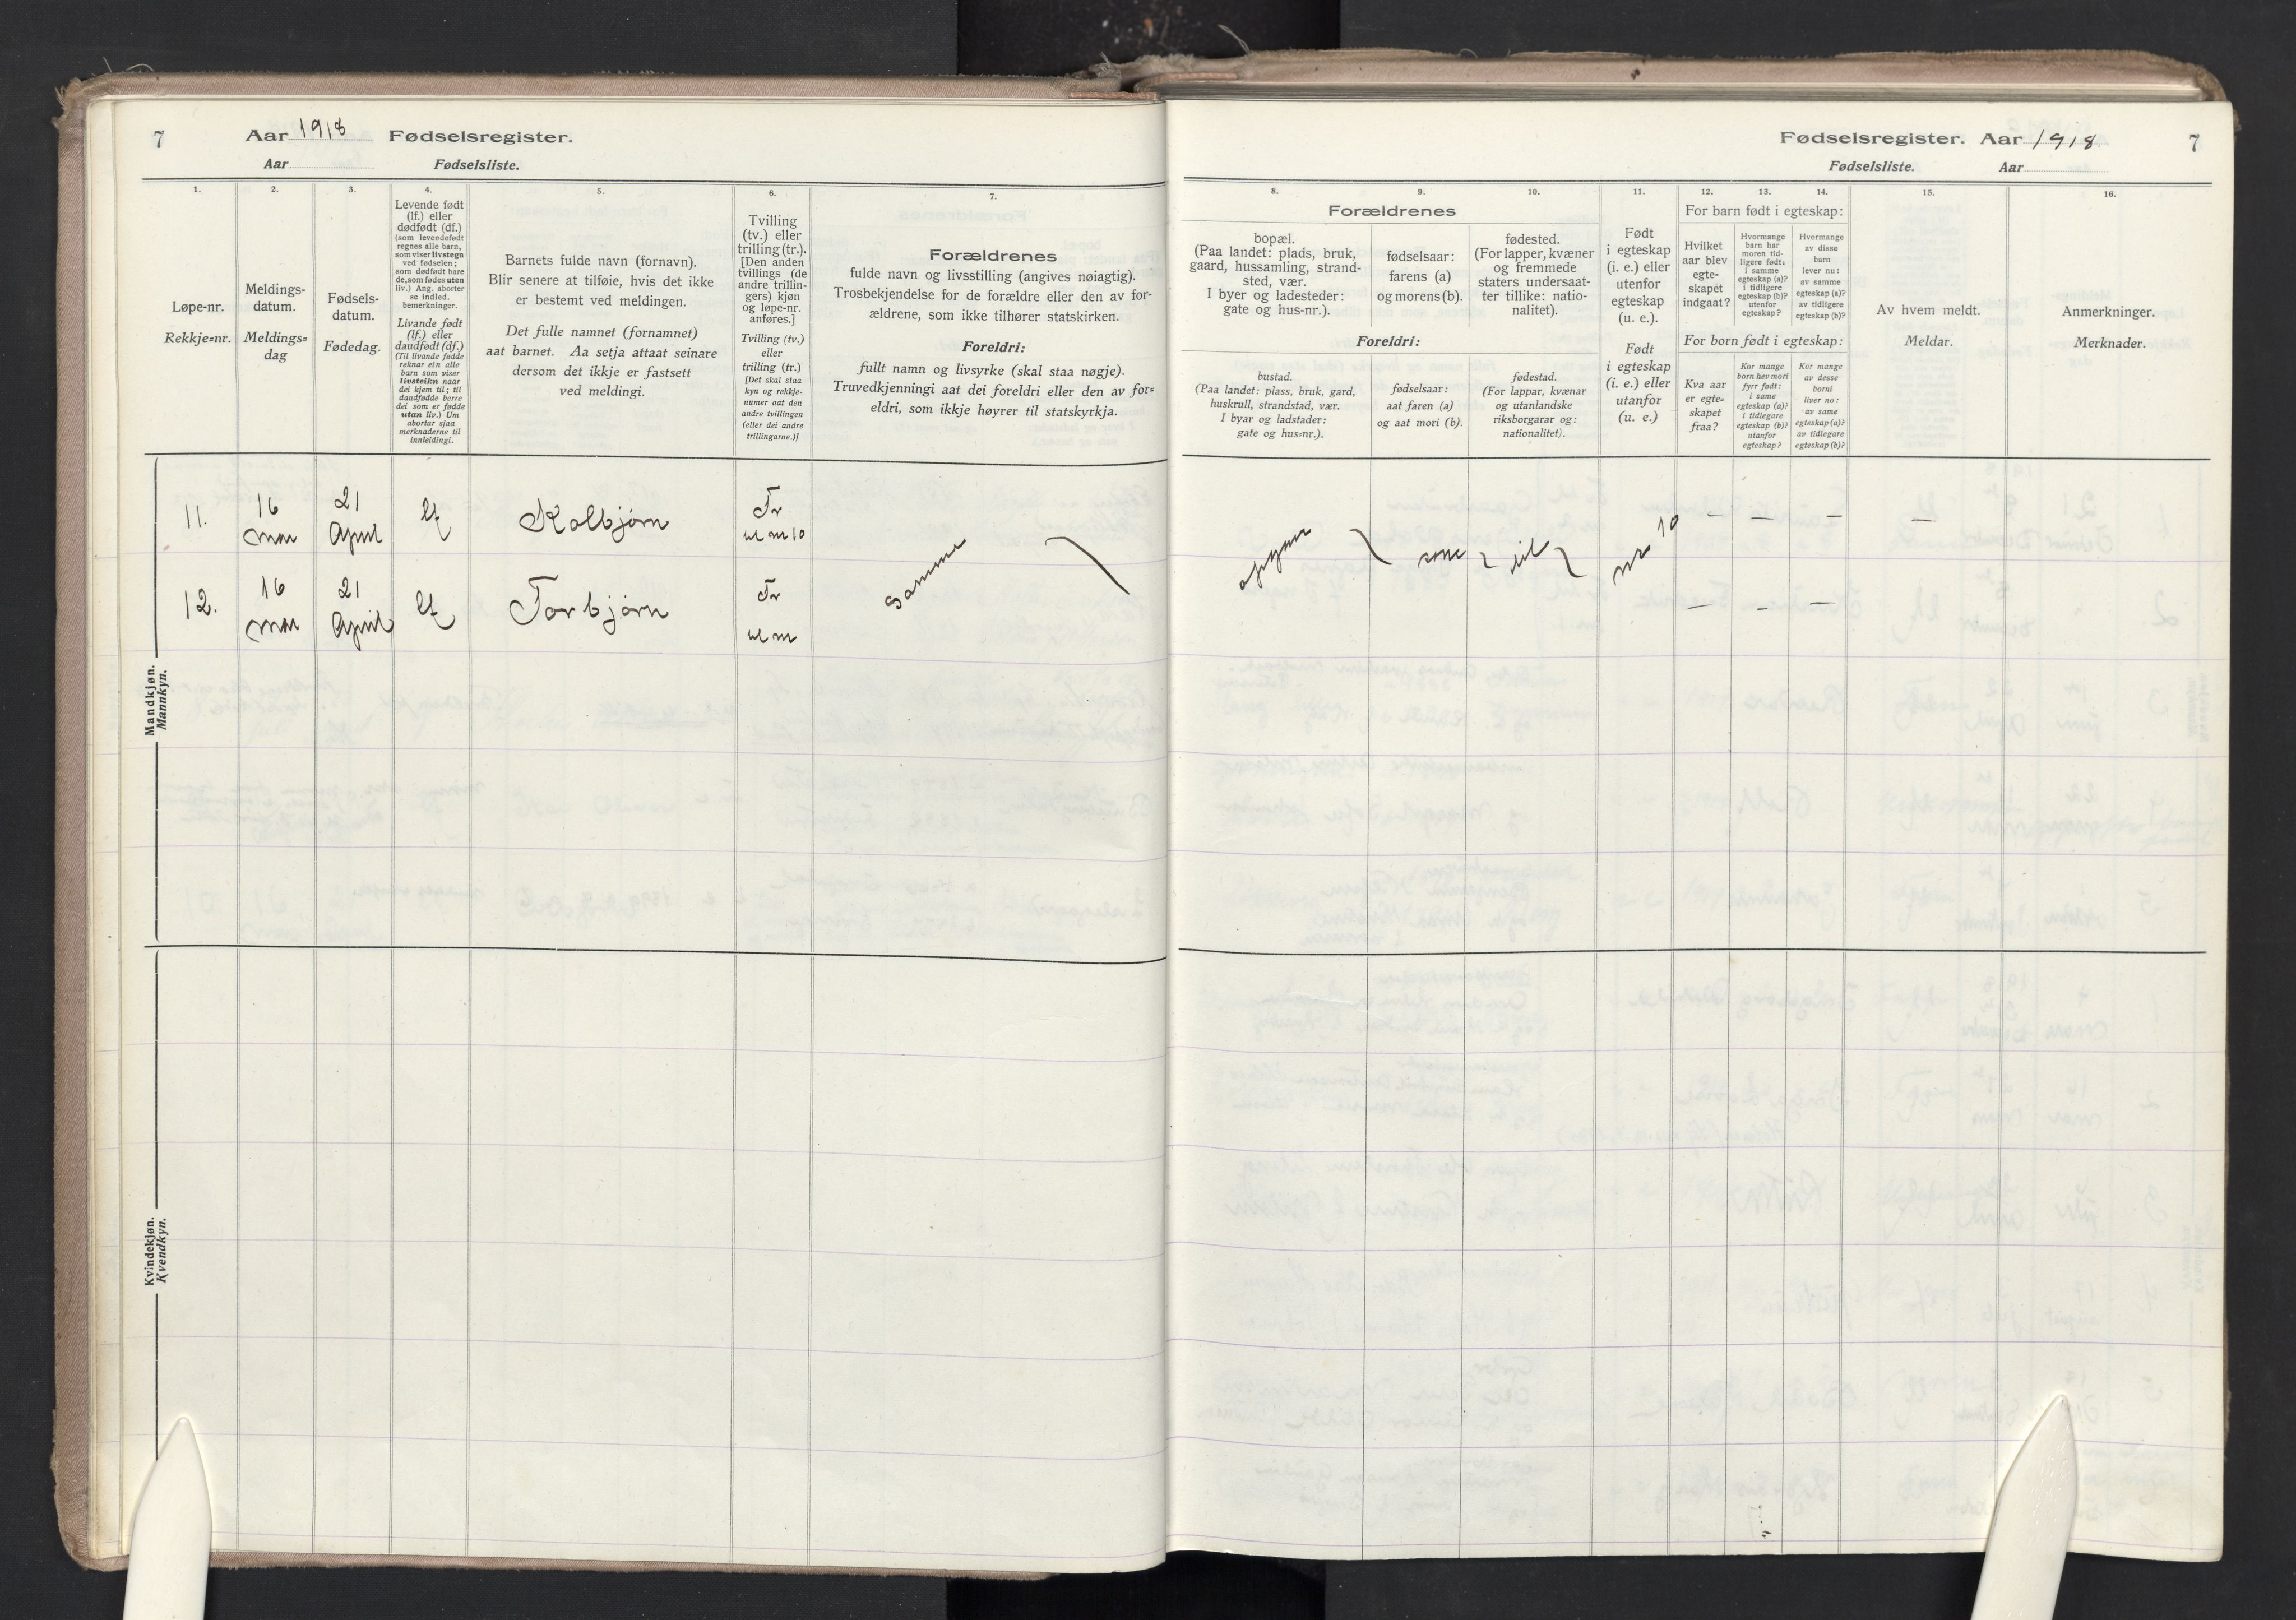 7
Aar 1918 Fødselsregister.
Aar Fødselsliste.
1.
2.
3.
4.
5.
6.
7.
Løpe-nr.
Rekkje=nr.
Meldings-
datum.
Meldings=
dag
Fødsels-
datum.
Fødedag.
Levende født
(lf.) eller
dødfødt (df.)
(som levendefødt
regnes alle barn,
som viser livstegn
ved fødselen;
som dødfødt bare
de, som fødes uten
liv.) Ang. aborter
se indled.
bemerkninger.
Livande født
(lf.) eller
daudfødt (df.)
(Til livande fødde
reknar ein alle
barn som viser
livsteikn naar
dei kjem til; til
daudfødde berre
dei som er fødde
utan liv.) Um
abortar sjaa
merknaderne til
innleidingi.
Barnets fulde navn (fornavn).
Blir senere at tilføie, hvis det ikke
er bestemt ved meldingen.
Det fulle namnet (fornamnet)
aat barnet. Aa setja attaat seinare
dersom det ikkje er fastsett
ved meldingi.
Tvilling
(tv.) eller
trilling (tr.).
[Den anden
tvillings (de
andre trillin-
gers) kjøn
og løpe-nr.
anføres.]
Tvilling (tv.)
eller
trilling (tr.)
[Det skal staa
kyn og rekkje-
numer aat den
andre tvillingen
(eller dei andre
trillingarne.)]
Forældrenes
fulde navn og livsstilling (angives nøiagtig).
Trosbekjendelse for de forældre eller den av for-
ældrene, som ikke tilhører statskirken.
Foreldri:
fullt namn og livsyrke (skal staa nøgje).
Truvedkjenningi aat dei foreldri eller den av for=
eldri, som ikkje høyrer til statskyrkja.
Mandkjøn.
Mannkyn.
11.
16
mai
21
April
lf
Kolbjørn
Tr
nr 10
12.
16
mai
21
April
lf
Torbjørn
Tr
nr
samme
Kvindekjøn.
Kvendkyn.
Fødselsregister. Aar 1918 7
Fødselsliste. Aar
8.
9.
10.
11.
12.
13.
14.
15.
16.
Forældrenes
bopæl.
(Paa landet: plads, bruk,
gaard, hussamling, strand-
sted, vær.
I byer og ladesteder:
gate og hus-nr.).
fødselsaar:
farens (a)
og morens (b).
fødested.
(For lapper, kvæner
og fremmede
staters undersaat-
ter tillike: natio-
nalitet).
Foreldri:
bustad.
(Paa landet: plass, bruk, gard,
huskrull, strandstad, vær.
I byar og ladstader:
gate og hus=nr.).
fødselsaar:
aat faren (a)
og aat mori (b).
fødestad.
(For lappar, kvænar
og utanlandske
riksborgarar og:
nationalitet).
Født
i egteskap
(i. e.) eller
utenfor
egteskap
(u. e.).
Født
i egteskap
(i. e.) eller
utanfor
(u. e.)
For barn født i egteskap:
Hvilket
aar blev
egte-
skapet
indgaat?
Hvormange
barn har
moren tid-
ligere født:
i samme
egteskap (a)?
i tidligere
egteskap (b)?
utenfor
egteskap?
Hvormange
av disse
barn
lever nu:
av samme
egteskap (a)?
av tidligere
egteskap (b)?
For born født i egteskap:
Kva aar
er egte=
skapet
fraa?
Kor mange
born hev mori
fyrr født:
i same
egteskap (a)?
i tidlegare
egteskap (b)?
utanfor
egteskap?
Kor mange
av desse
borni
liver no:
av same
egteskap (a)?
av tidlegare
egteskap (b)?
Av hvem meldt.
Meldar.
Anmerkninger.
Merknader.
som til nr 10
– – – –
– – –